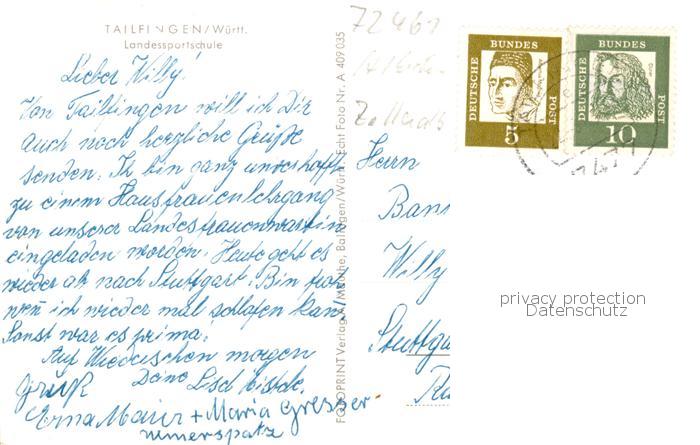 TAILFINGEN/Württ.
Landessportschule
Lieber Willy!
Von Tailfingen will ich Dir
auch noch herzliche Grüße
senden. Ich bin ganz unverhofft
zu einem Hausfrauenlehrgang
von unserer Landesfrauenwartin
eingeladen worden. Heute geht es
wieder ab nach Stuttgart. Bin froh
wen ich wieder mal schlafen kann
Sonst war es prima!
Auf Wiedersehen morgen
Gruß Deine
Erna Maier + Maria Gresser
FOTOPRINT Verlag A. Balingen/Württ. Echt Foto Nr. A 409 035
72461
DEUTSCHE BUNDES POST
5
DEUTSCHE BUNDES POST
Dürer
10
Herrn
Willy
privacy protection
Datenschutz